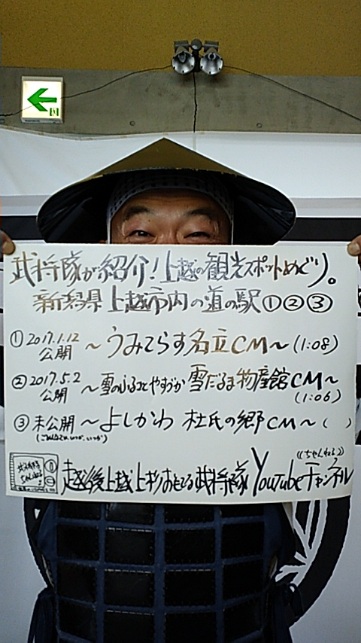 武将隊が紹介！上越の観光スポットめぐり。
新潟県 上越市内の道の駅①②③
①2017.1.12公開 ～うみてらす名立CM～(1:08)
②2017.5.2公開 ～雪のふるさとやすづか 雪だるま物産館CM～(1:06)
③未公開 ～よしかわ 杜氏の郷CM～( )
越後上越 上杉おもてなし武将隊 YouTubeチャンネル